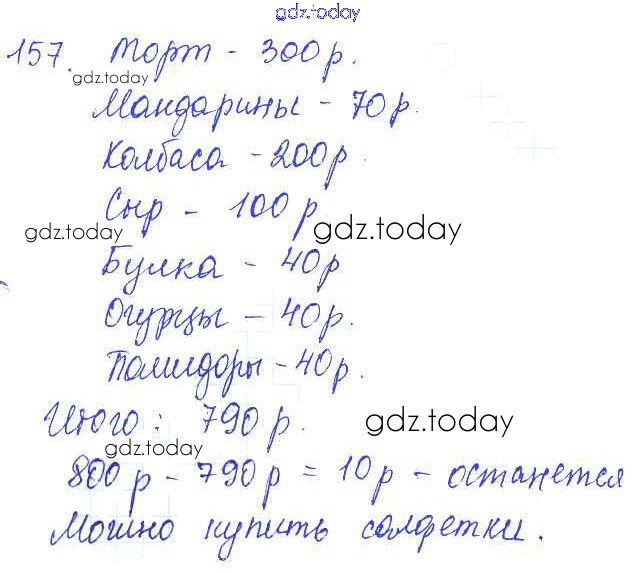 gdz.today
157. Торт - 300 р.
gdz.today
Мандарины - 70 р.
Колбаса - 200 р.
Сыр - 100 р
gdz.today
gdz.today
Булка - 40 р
Огурцы - 40 р.
Помидоры - 40 р.
Итого: 790 р.
gdz.today
gdz.today
800 р - 790 р = 10 р - останется
Можно купить салфетки.